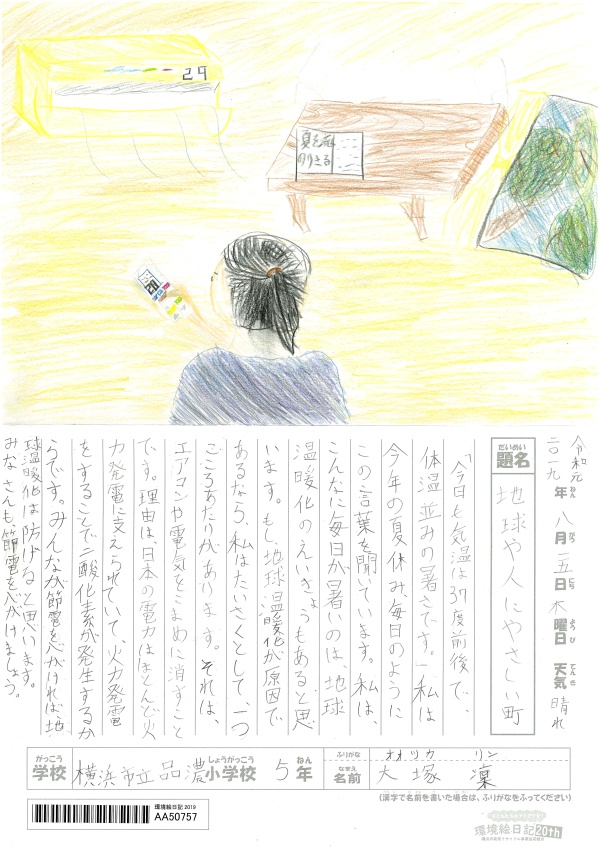 29
夏を
のりきる
29
令和元
二〇一九年 八月 一五日 木曜日 天気 晴れ
ねん がつ にち ようび てんき
だいめい
題名
地球や人にやさしい町
「今日も気温は37度前後で、
体温並みの暑さです。」私は
今年の夏休み、毎日のように
この言葉を聞いています。私は、
こんなに毎日が暑いのは、地球
温暖化のえいきょうもあると思
います。もし、地球温暖化が原因で
あるなら、私はたいさくとして、一つ
こころあたりがあります。それは、
エアコンや電気をこまめに消すこと
です。理由は、日本の電力はほとんど火
力発電に支えられていて、火力発電
をすることで二酸化炭素が発生するか
らです。みんなが節電を心がければ、地
球温暖化は防げると思います。
みなさんも節電を心がけましょう。
がっこう しょうがっこう ねん
学校 横浜市立 品濃 小学校 5年
ふりがな オオツカ リン
なまえ
名前 大塚 凜
(漢字で名前を書いた場合は、ふりがなをふってください)
環境絵日記 2019
AA50757
環境絵日記 20th